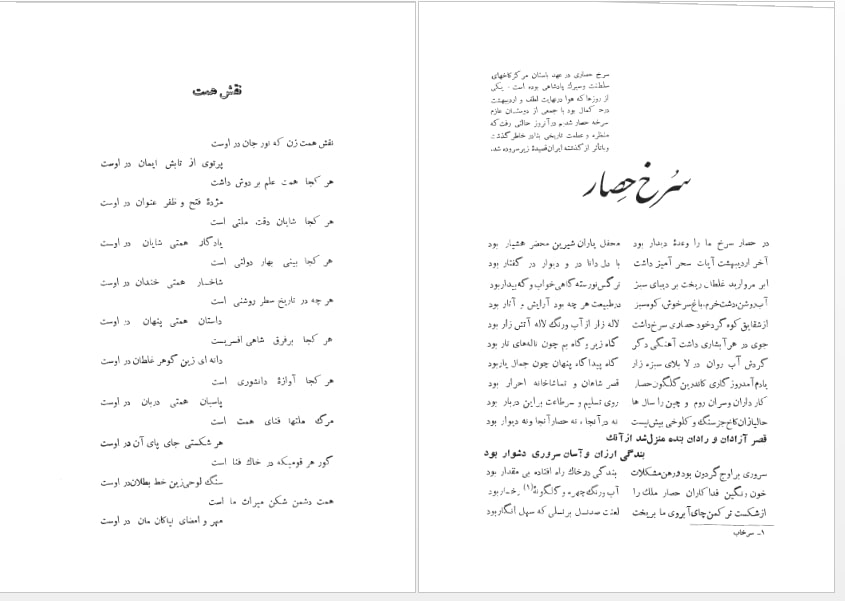 سرخ حصاری در عهد باستان مرکز کاخهای
سلطنت و سیرک پادشاهی بوده است - یکی
از روزها که هوا در نهایت لطف و اردیبهشت
در حد کمال بود با جمعی از دوستان عازم
سرخه حصار شدیم در آنروز حالتی رفت که
منظره و عظمت تاریخی بنا در خاطر گذشت
و با تأثر از گذشته ایران قصیدهٔ زیر سروده شد.
سرخ حصار
در حصار سرخ ما را وعدهٔ دیدار بود محفل یاران شیرین محضر هشیار بود
آخر اردیبهشت آیات سحر آمیز داشت با دل دانا در و دیوار در گفتار بود
ابر مروارید غلطان ریخت بر دیبای سبز نرگس نورسته گاهی خواب و گه بیدار بود
آب روشن، دشت خرم، باغ سرخوش، کوه سبز در طبیعت هر چه بود آرایش و آثار بود
از شقایق کوه گرد خود حصاری سرخ داشت لاله زار از آب و رنگ لاله آتش زار بود
جوی در هر آبشاری داشت آهنگی دگر گاه زیر و گاه بم چون ناله‌های تار بود
گردش آب روان در لا بلای سبزه زار گاه پیدا گاه پنهان چون جمال یار بود
یادم آمد روزگاری کاندرین گلگون حصار قصر شاهان و تماشاخانه احرار بود
کار داران و سران روم و چین را سال ها روی تسلیم و سر طاعت بر این دربار بود
حالیا زان کاخ جز سنگ و کلوخی بیش نیست نه در آنجا، نه حصار آنجا و نه دیوار بود
قصر آزادان و رادان بنده منزل شد از آنک
بندگی ارزان و آسان سروری دشوار بود
سروری بر اوج گردون بود و رهن مشکلات بندگی در خاک راه افتاده بی مقدار بود
خون رنگین فداکاران حصار ملک را آب و رنگ چهره و گلگونهٔ (۱) رخسار بود
از شکست ترکمن چای آبروی ما بریخت لعنت صد نسل بر نسلی که سهل انگار بود
۱- سرخاب
نقش همت
نقش همت زن که نور جان در اوست
پرتوی از تابش ایمان در اوست
هر کجا همت علم بر دوش داشت
مژدهٔ فتح و ظفر عنوان در اوست
هر کجا شایان دقت ملتی است
یادگار همتی شایان در اوست
هر کجا بینی بهار دولتی است
شاخسار همتی خندان در اوست
هر چه در تاریخ سطر روشنی است
داستان همتی پنهان در اوست
هر کجا بر فرق شاهی افسریست
دانه ای زین گوهر غلطان در اوست
هر کجا آوازهٔ دانشوری است
پاسبان همتی دربان در اوست
مرگ ملتها فنای همت است
هر شکستی جای پای آن در اوست
گور هر قومیکه در خاک فنا است
سنگ لوحی زین خط بطلان در اوست
همت دشمن شکن میراث ما است
مهر و امضای نیاکان مان در اوست